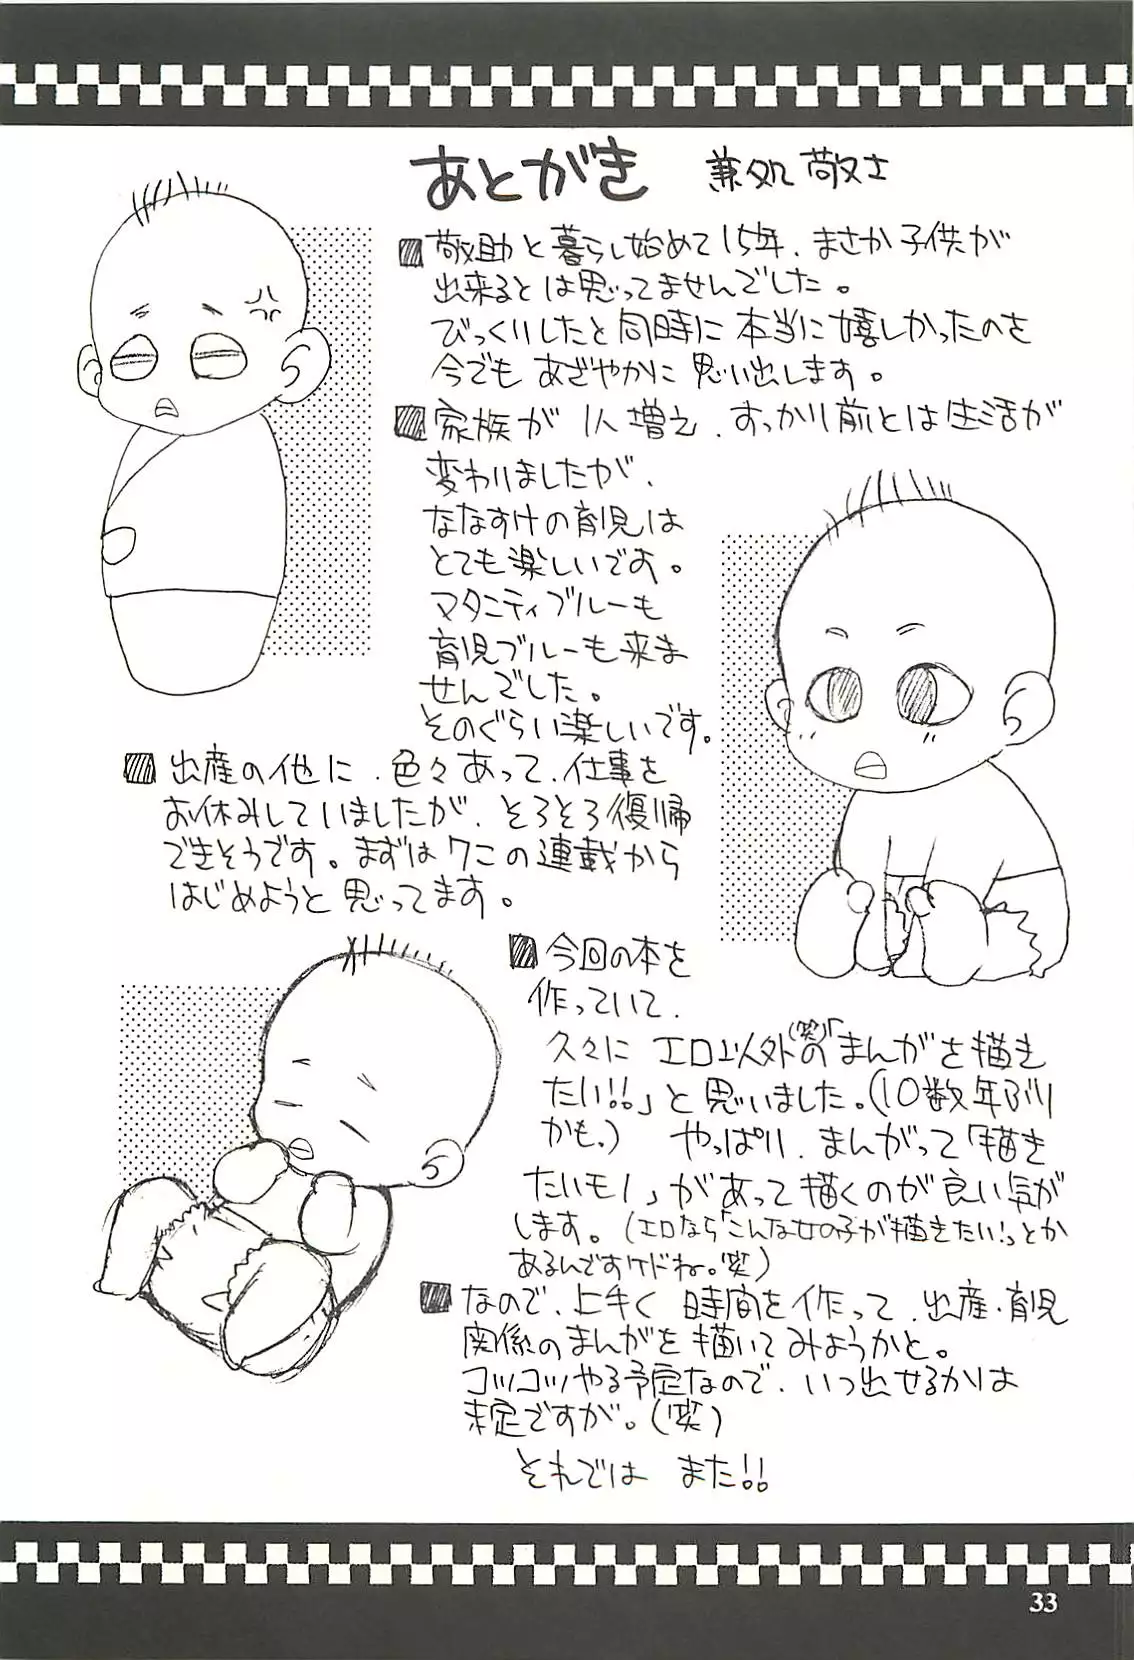 あとがき 兼処敬士
■敬助と暮らし始めて15年、まさか子供が
出来るとは思ってませんでした。
びっくりしたと同時に本当に嬉しかったのを
今でもあざやかに思い出します。
■家族が1人増え、すっかり前とは生活が
変わりましたが、
ななすけの育児は
とても楽しいです。
マタニティブルーも
育児ブルーも来ま
せんでした。
そのぐらい楽しいです。
■出産の他に、色々あって、仕事を
お休みしていましたが、そろそろ復帰
できそうです。まずはワニの連載から
はじめようと思ってます。
■今回の本を
作っていて、
久々にエロ以外(笑)の「まんがを描き
たい!!」と思いました。(10数年ぶり
かも。) やっぱり、まんがって「描き
たいモノ」があって描くのが良い気が
します。(エロなら「こんな女の子が描きたい!」とか
あるんですけドね。(笑))
■なので、上手く時間を作って、出産・育児
関係のまんがを描いてみようかと。
コツコツやる予定なので、いつ出せるかは
未定ですが。(笑)
それでは また!!
33